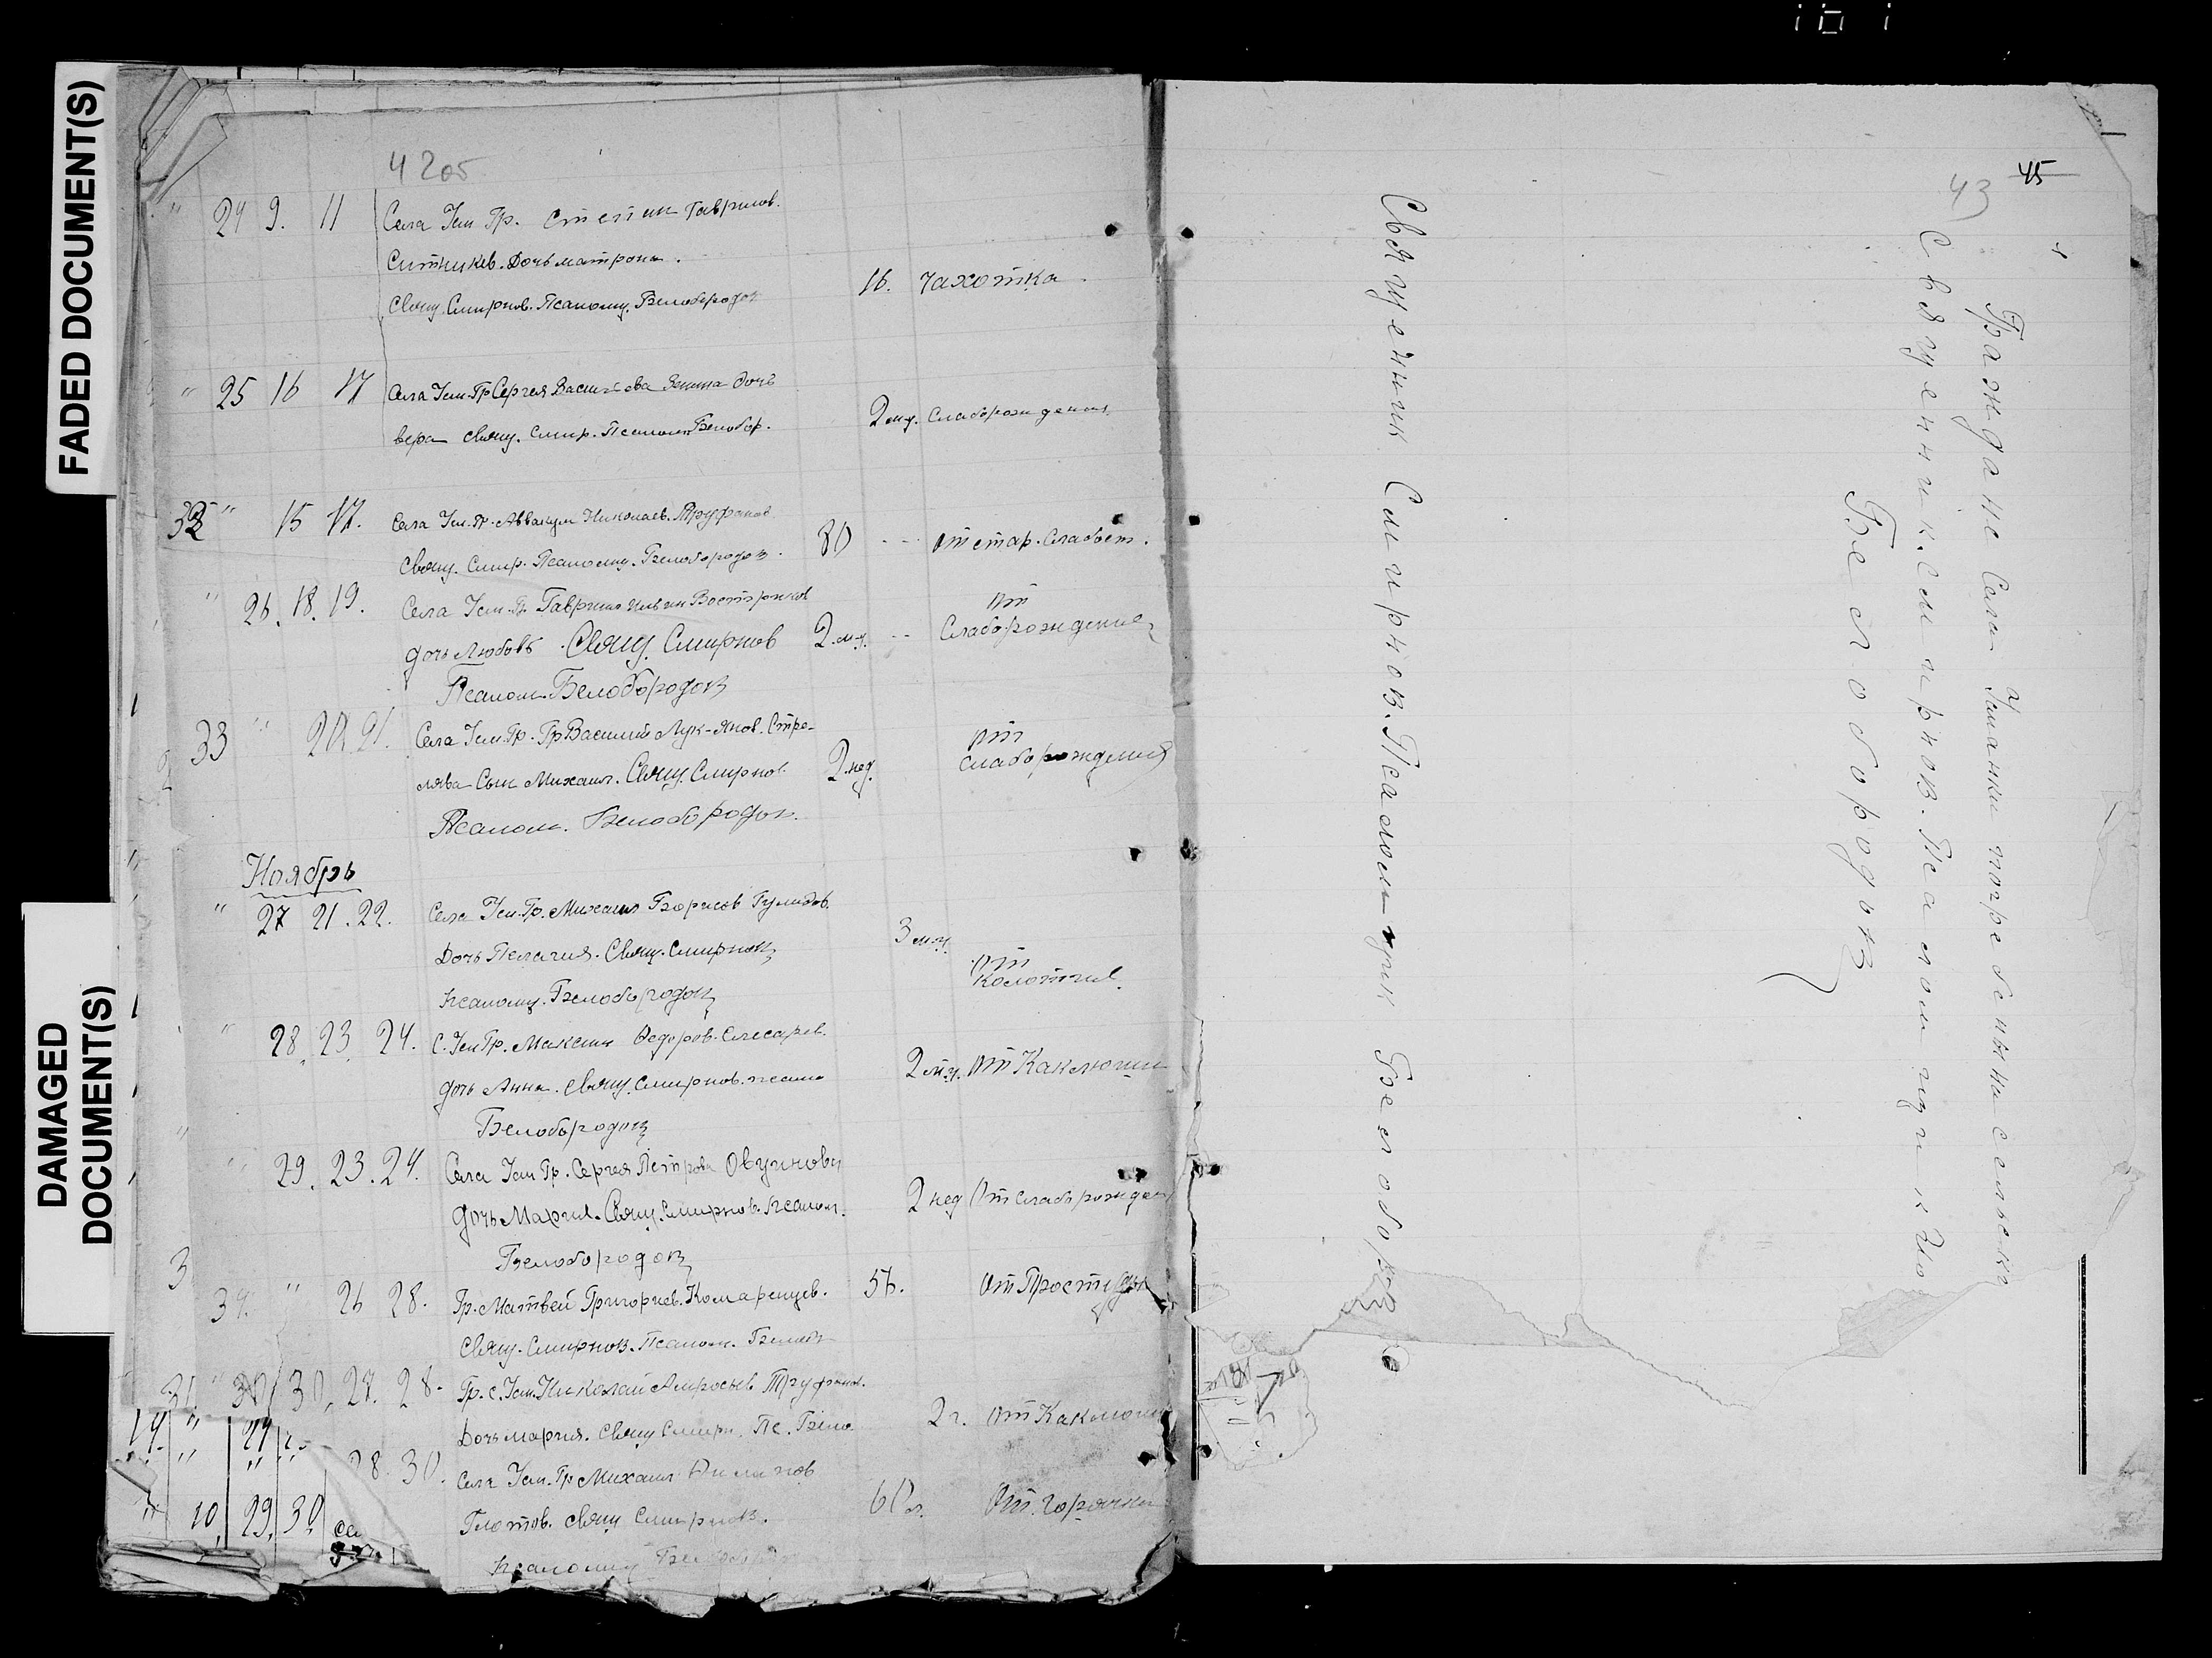 FADED DOCUMENT(S)
DAMAGED
DOCUMENT(S)
4 2об
" 24 9. 11 Села Усм Гр. Степан Гаврилов.
Ситников. Дочь Матрона.
16. Чахотка
Свящ. Смирнов. Псаломщ. Белобородов
" 25 16 17 Села Усм. Гр Сергея Васильева дочь
Вера Свящ. Смир. Псалом Белобор.
2 мц. Слаборождения
32 " 15 17. Села Усм. Гр. Аввакум Николаев. Труфанов
80 От стар. Слабост.
Свящ. Смир. Псаломщ. Белобородов.
" 26. 18. 19. Села Усм. Гр. Гавриил Ильин Востриков
От
дочь Любовь. Свящ. Смирнов 2 м-ц. Слаборождения
Псалом. Белобородов
33 " 20 21. Села Усм. Гр. Гр Василий Лук-янов. Стре-
От
лява Сын Михаил. Свящ. Смирнов. 2 нед. слаборождения
Псалом. Белобородов.
Ноябрь
" 27 21. 22. Села Усм. Гр. Михаил Борисов Гулидов.
3 м-ц.
Дочь Пелагия. Свящ. Смирнов
От
Псаломщ. Белобородов
" 28. 23. 24. С. Усм Гр. Максим Федоров. Слесарев.
дочь Анна. Свящ. Смирнов. псало 2 м-ц. От Каклюши
Белобородов
" 29. 23. 24. Села Усм Гр. Сергея Петрова Овчинова
дочь Мария. Свящ. Смирнов. Псалом. 2 нед От Слаборожден
Белобородов
34. " 26 28. Гр. Матвей Григорьев. Комаренцев. 56. От Простуды
Свящ. Смирнов. Псалом. Белоб
30, 27. 28. Гр. с. Усм. Николай Амросьев Труфанов.
Дочь Мария. Свящ Смирн. Пс. Бело 2 г. От Каклюши
28. 30. Села Усм. Гр Михаил
Глотов. Свящ Смирнов. От. горячки
Псаломщ Белобородов
19. " 29
" 10. 29. 30
45
43
Граждане Села Усманки погребены на сельском
Священник. Смирнов. Псаломщик Ио
Белобородов
Священник Смирнов. Псаломщик Белобор